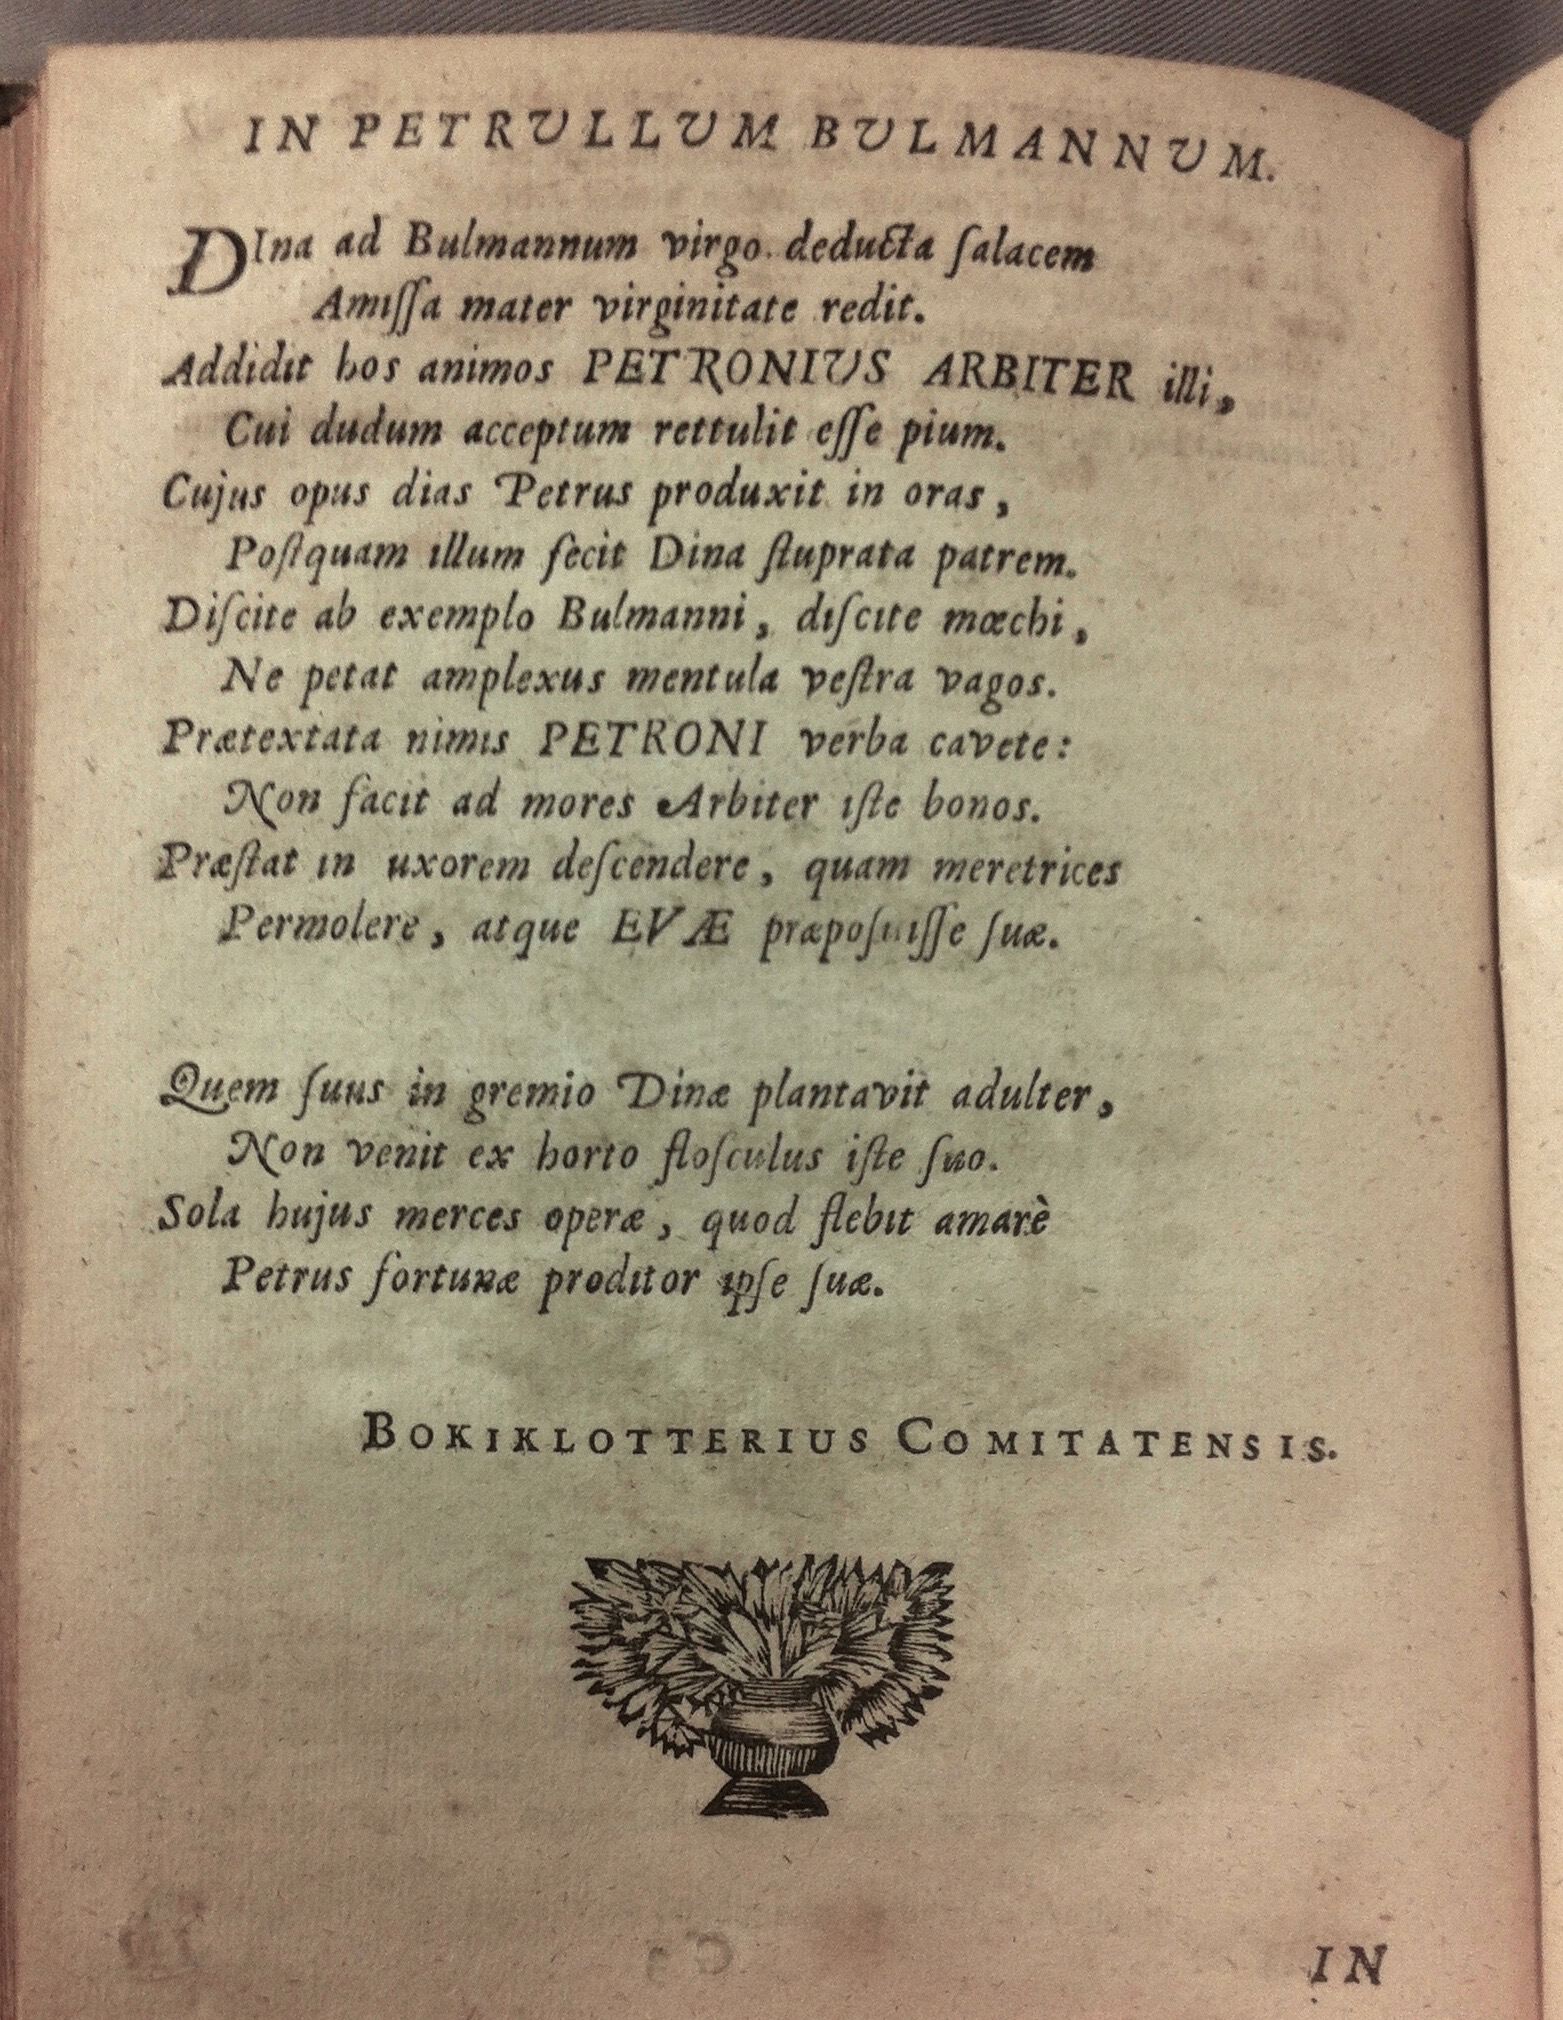 IN PETRULLUM BULMANNUM.
DIna ad Bulmannum virgo deducta ſalacem
Amiſſa mater virginitate redit.
Addidit hos animos PETRONIUS ARBITER illi,
Cui dudum acceptum rettulit eſſe pium.
Cujus opus dias Petrus produxit in oras,
Poſtquam illum fecit Dina ſtuprata patrem.
Diſcite ab exemplo Bulmanni, diſcite mœchi,
Ne petat amplexus mentula veſtra vagos.
Prætextata nimis PETRONI verba cavete:
Non facit ad mores Arbiter iſte bonos.
Præſtat in uxorem deſcendere, quam meretrices
Permolere, atque EVÆ præpoſuiſſe ſuæ.
Quem ſuus in gremio Dinæ plantavit adulter,
Non venit ex horto floſculus iſte ſuo.
Sola hujus merces operæ, quod flebit amarè
Petrus fortunæ proditor ipſe ſuæ.
BOKIKLOTTERIUS COMITATENSIS.
IN